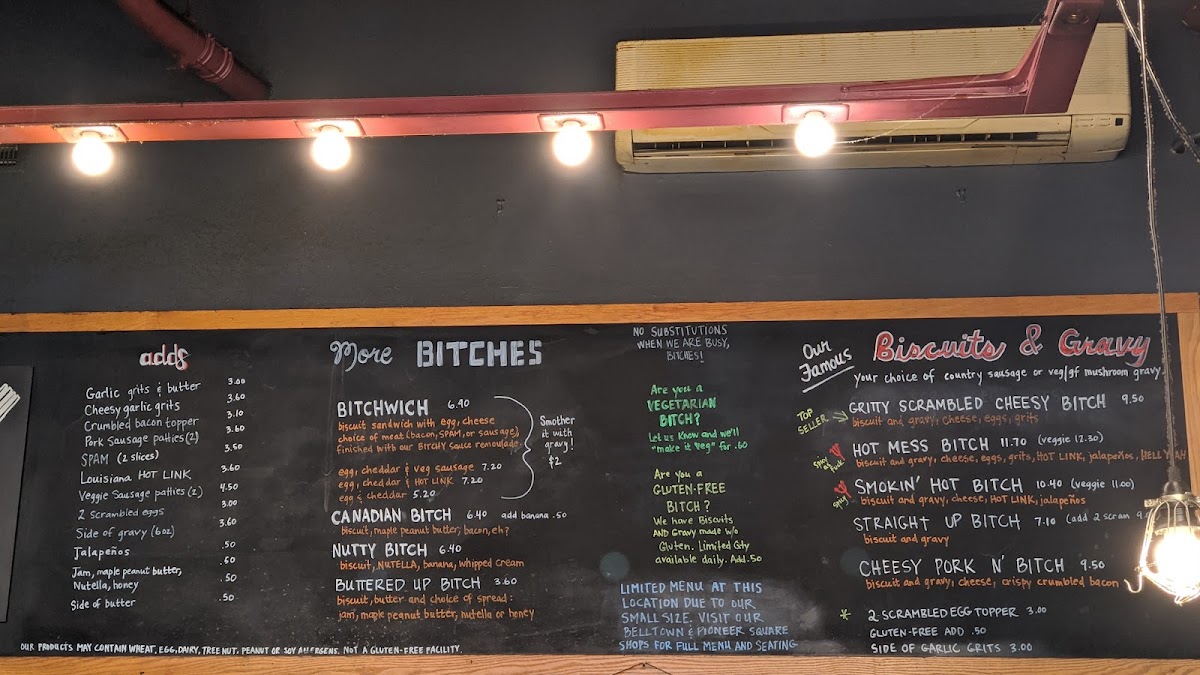 adds
Garlic grits & butter 3.00
Cheesy garlic grits 3.60
Crumbled bacon topper 3.10
Pork Sausage patties (2) 3.60
SPAM (2 slices) 3.50
Louisiana HOT LINK 3.60
Veggie Sausage patties (2) 4.50
2 scrambled eggs 3.00
Side of gravy (6oz) 3.60
Jalapeños .50
Jam, maple peanut butter, .60
Nutella, honey .50
Side of butter .50
OUR PRODUCTS MAY CONTAIN WHEAT, EGG, DAIRY, TREE NUT, PEANUT OR SOY ALLERGENS. NOT A GLUTEN-FREE FACILITY.
More BITCHES
BITCHWICH 6.40
biscuit sandwich with egg, cheese
choice of meat (bacon, SPAM, or sausage)
finished with our BITCHY sauce remoulade
egg, cheddar & veg sausage 7.20
egg, cheddar & HOT LINK 7.20
egg & cheddar 5.20
Smother
it with
gravy!
$2
CANADIAN BITCH 6.40 add banana .50
biscuit, maple peanut butter, bacon, eh?
NUTTY BITCH 6.40
biscuit, NUTELLA, banana, whipped cream
BUTTERED UP BITCH 3.60
biscuit, butter and choice of spread:
jam, maple peanut butter, nutella or honey
NO SUBSTITUTIONS
WHEN WE ARE BUSY,
BITCHES!
Are you a
VEGETARIAN
BITCH?
Let us know and we'll
"make it veg" for .60
Are you a
GLUTEN-FREE
BITCH?
We have Biscuits
AND Gravy made w/o
Gluten. Limited Qty
available daily. Add .50
LIMITED MENU AT THIS
LOCATION DUE TO OUR
SMALL SIZE. VISIT OUR
BELLTOWN & PIONEER SQUARE
SHOPS FOR FULL MENU AND SEATING
Our
Famous
Biscuits & Gravy
Your choice of country sausage or veg/gf mushroom gravy
TOP
SELLER
GRITTY SCRAMBLED CHEESY BITCH 9.50
biscuit and gravy, cheese, eggs, grits
HOT MESS BITCH 11.70 (veggie 12.30)
biscuit and gravy, cheese, eggs, grits, HOT LINK, jalapeños, HELL YEAH
Spicy
SMOKIN' HOT BITCH 10.40 (veggie 11.00)
biscuit and gravy, cheese, HOT LINK, jalapeños
spicy
STRAIGHT UP BITCH 7.10 (add 2 scram
biscuit and gravy
CHEESY PORK N' BITCH 9.50
biscuit and gravy, cheese, crispy crumbled bacon
* 2 SCRAMBLED EGG TOPPER 3.00
GLUTEN-FREE ADD .50
SIDE OF GARLIC GRITS 3.00